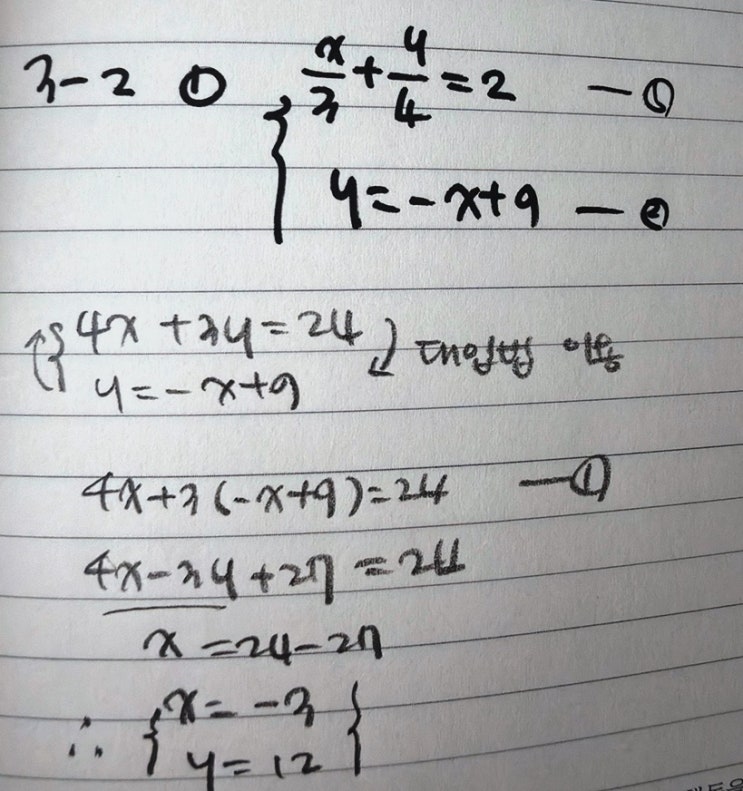 3-2 ① x/3 + y/4 = 2 — ①
y = -x+9 — ②
4x + 3y = 24
y = -x+9 대입법 이용
4x+3(-x+9)=24 — ①
4x-3y+27=24
x = 24-27
∴ { x = -3
y = 12 }